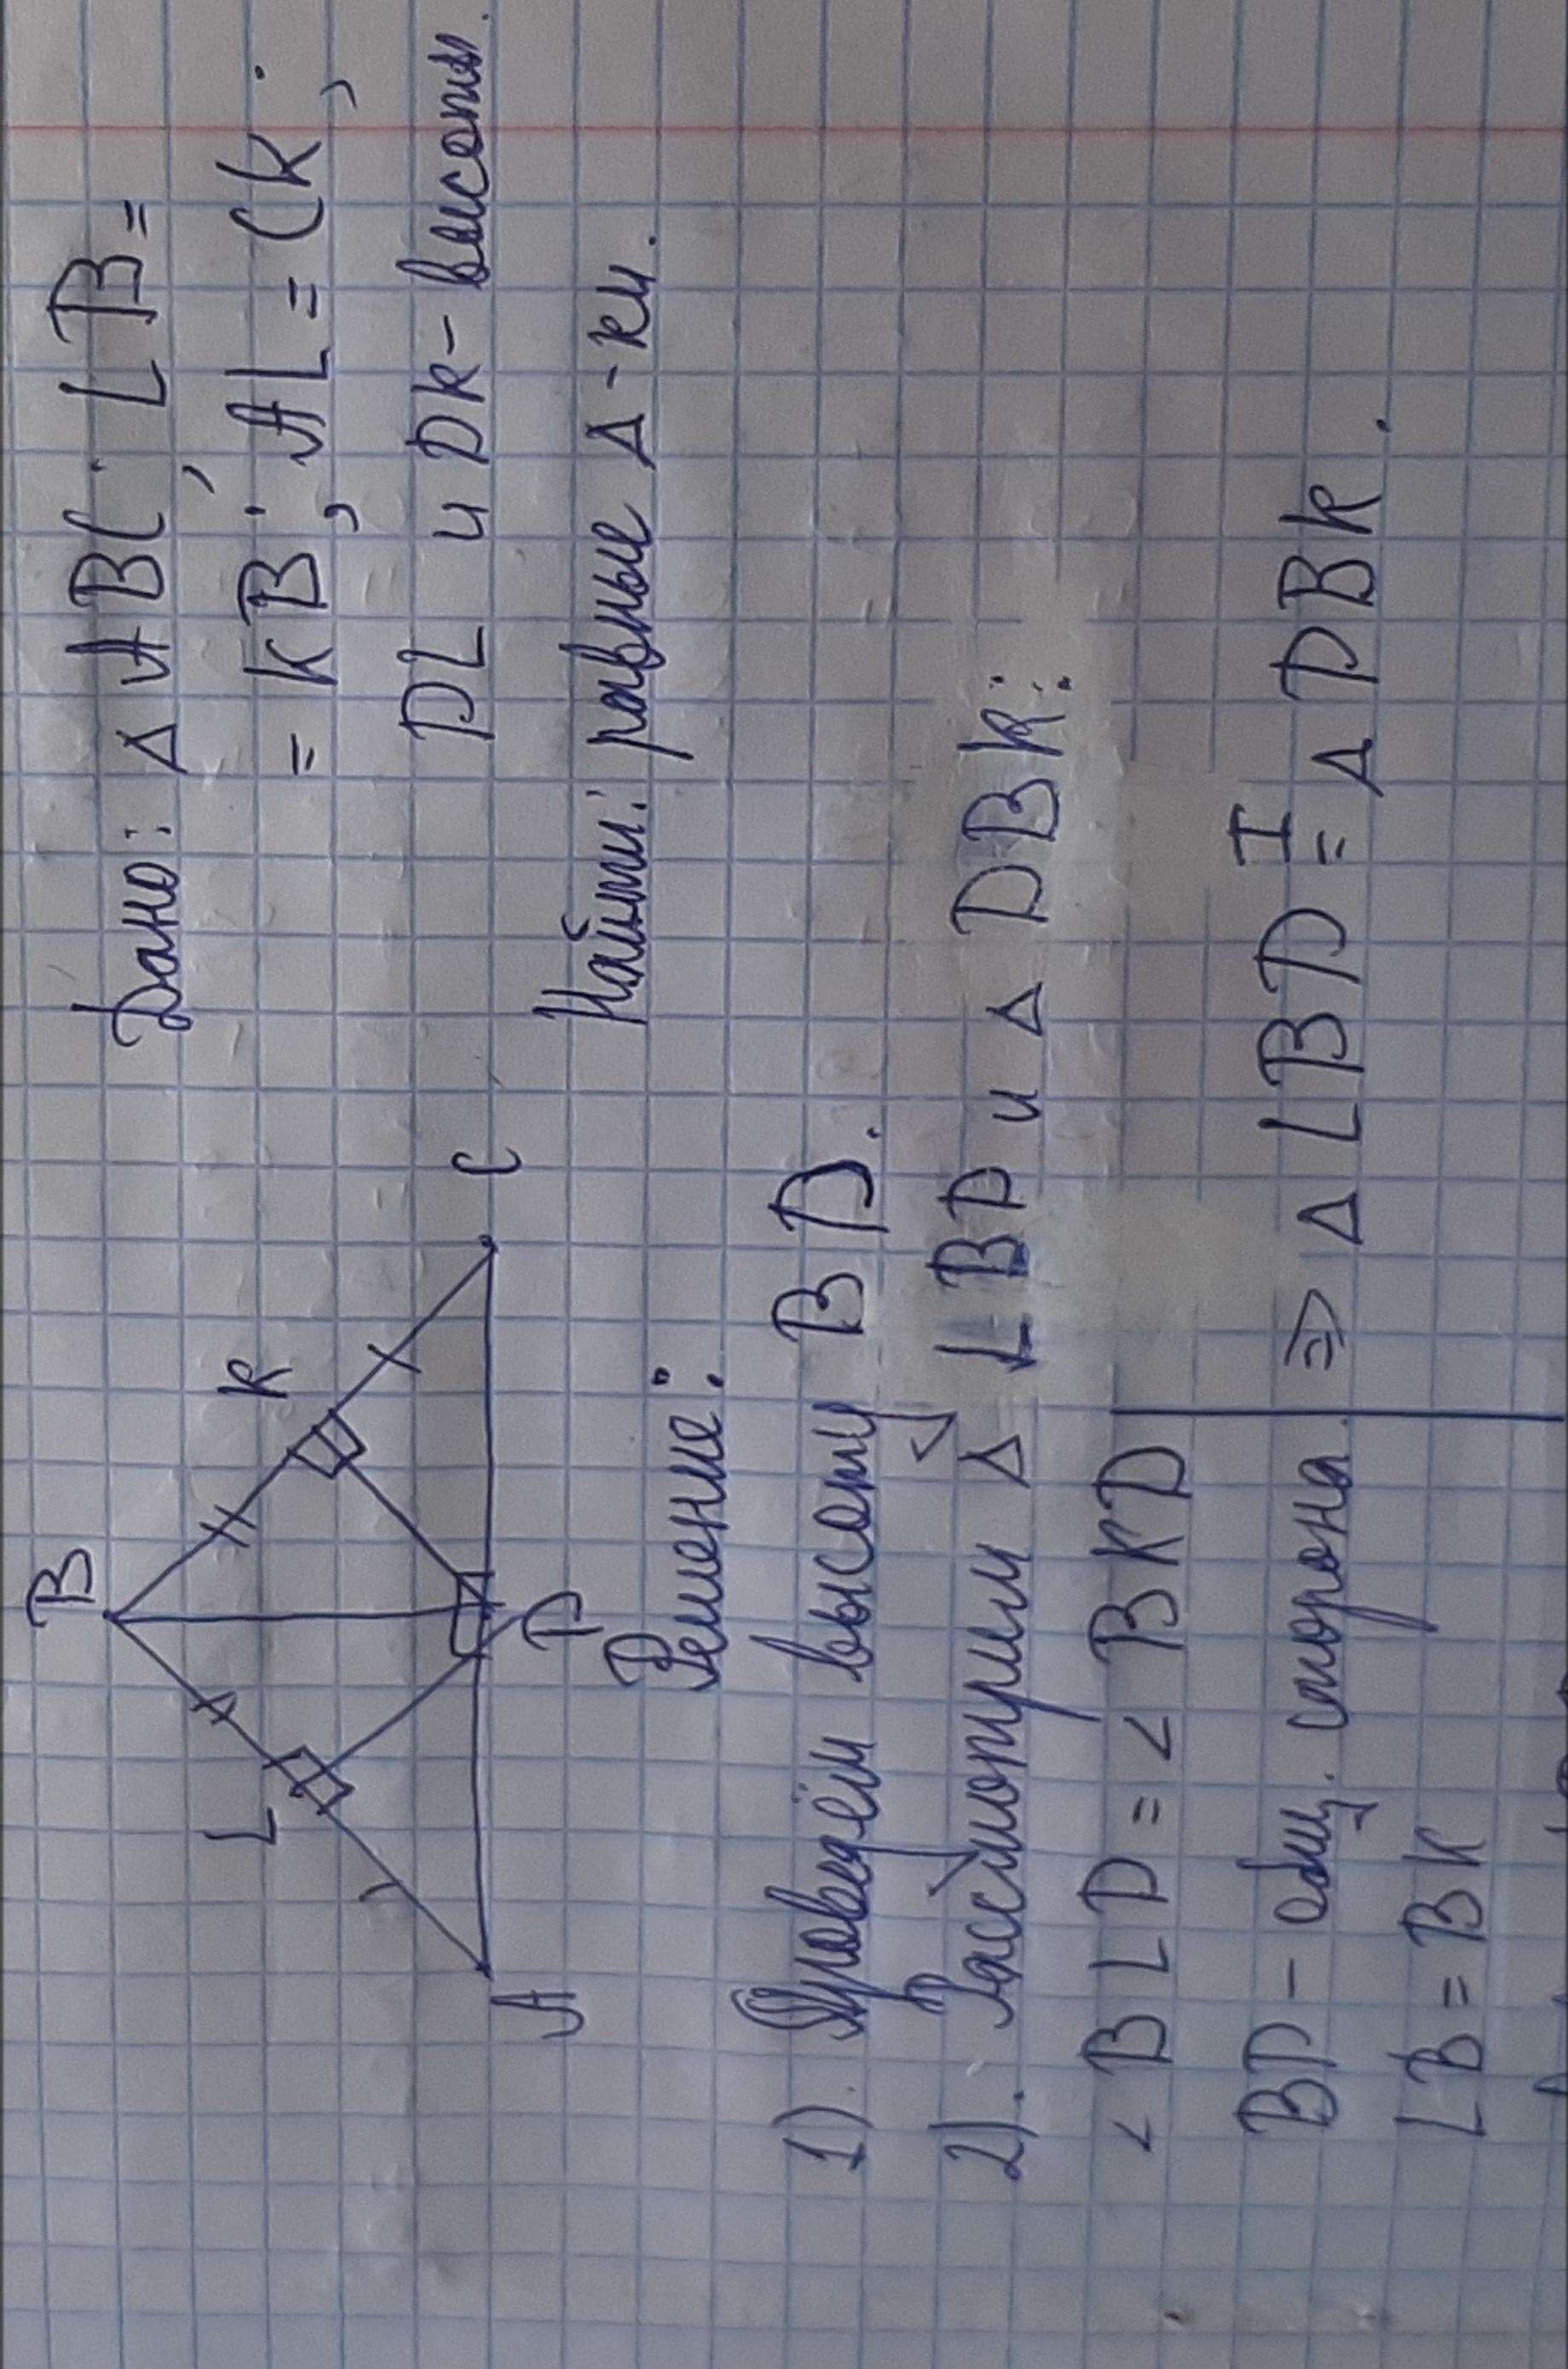 Дано: Δ ABC; LB =
= KB; AL = CK;
DL и DK - высоты.
Найти: равные Δ-ки.
B
K
L
A
D
C
Решение:
1). Проведём высоту BD.
2). Рассмотрим Δ LBD и Δ DBK:
∠ BLD = ∠ BKD
BD - общ. сторона ⇒ Δ LBD I = Δ DBK.
LB = BK